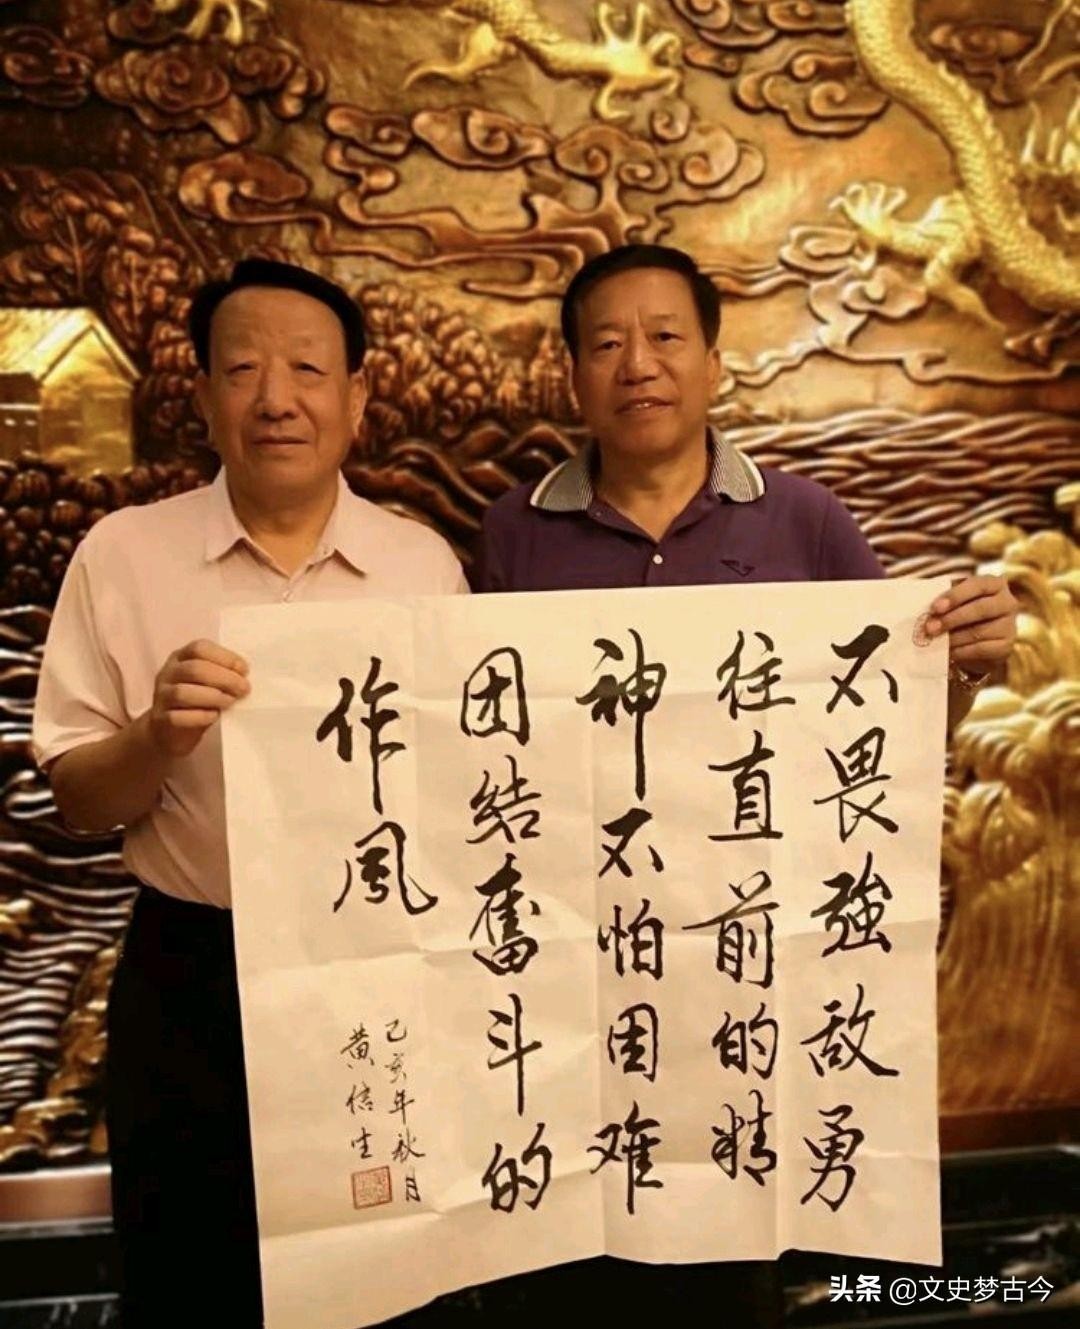 不畏強敌勇
往直前的精
神不怕困难
团结奮斗的
作风
己亥年秋月
黄信生
头条 @文史梦古今